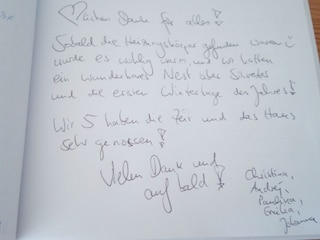 ♡lichen Danke für alles!
Sobald die Heizungskörper gefunden waren
wurde es richtig warm, und wir hatten
ein wunderbares Nest über Silvester
und die ersten Wintertage des Jahres!
Wir 5 haben die Zeit und das Haus
sehr genossen!
Vielen Dank und
auf bald!
Christina,
Andrej,
Paulina,
Johanna